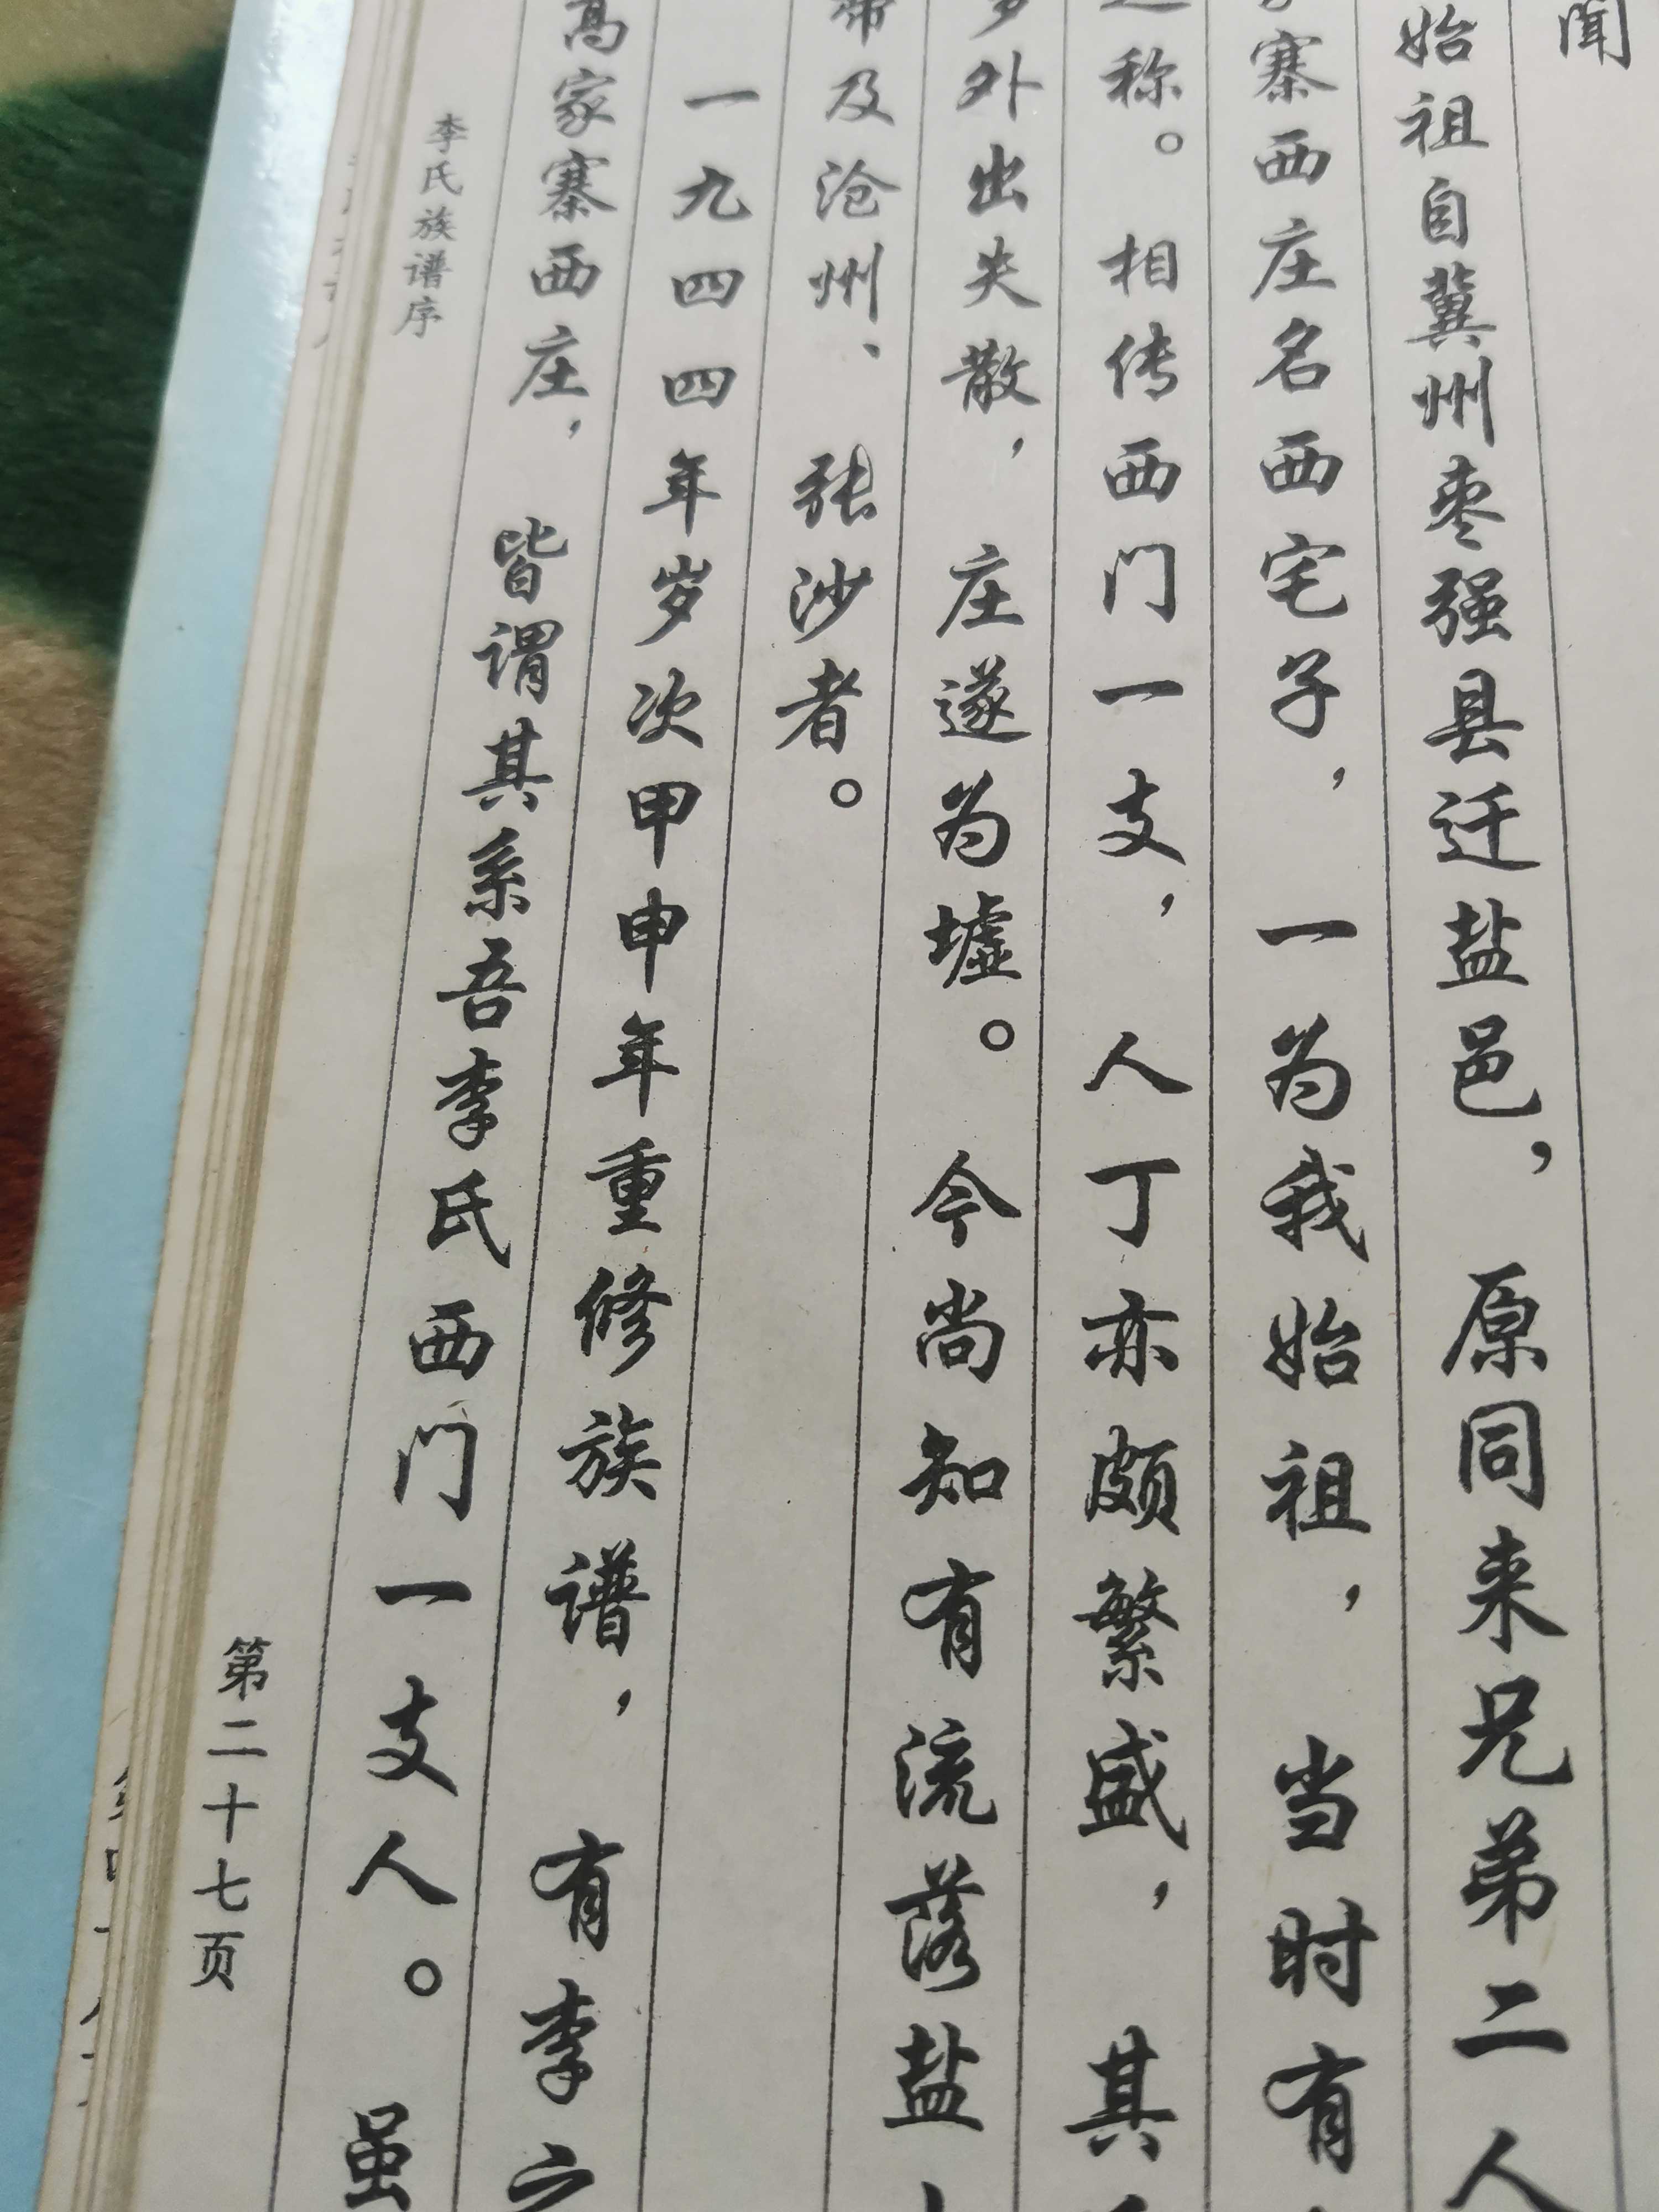 闻
始祖自冀州枣强县迁盐邑，原同来兄弟二人
寨西庄名西宅子，一为我始祖，当时有
称。相传西门一支，人丁亦颇繁盛，其
外出失散，庄遂为墟。今尚知有流落盐
带及沧州、张沙者。
一九四四年岁次甲申年重修族谱，有李
高家寨西庄，皆谓其系吾李氏西门一支人。虽
李氏族谱序
第二十七页